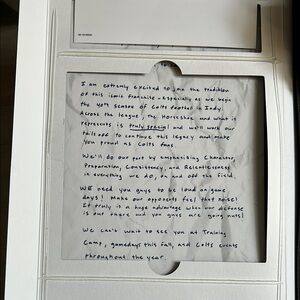 I am extremely excited to join the tradition
of this iconic franchise - especially as we begin
the 40th season of Colts football in Indy.
Across the league, the Horseshoe and what it
represents is truly special and we'll work our
tails off to continue this legacy and make
you proud as Colts fans.
We'll do our part by emphasizing Character,
Preparation, Consistency, and Relentlessness
in everything we do, on and off the field.
WE need you guys to be loud on game
days! Make our opponents feel that noise!
It truly is a huge advantage when our defense
is out there and you guys are going nuts!
We can't wait to see you at Training
Camp, gamedays this fall, and Colts events
throughout the year.